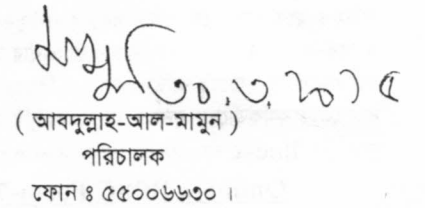 ৩০.৩.২০১৫
( আবদুল্লাহ-আল-মামুন )
পরিচালক
ফোন ঃ ৫৫০০৬৬৩০ ।